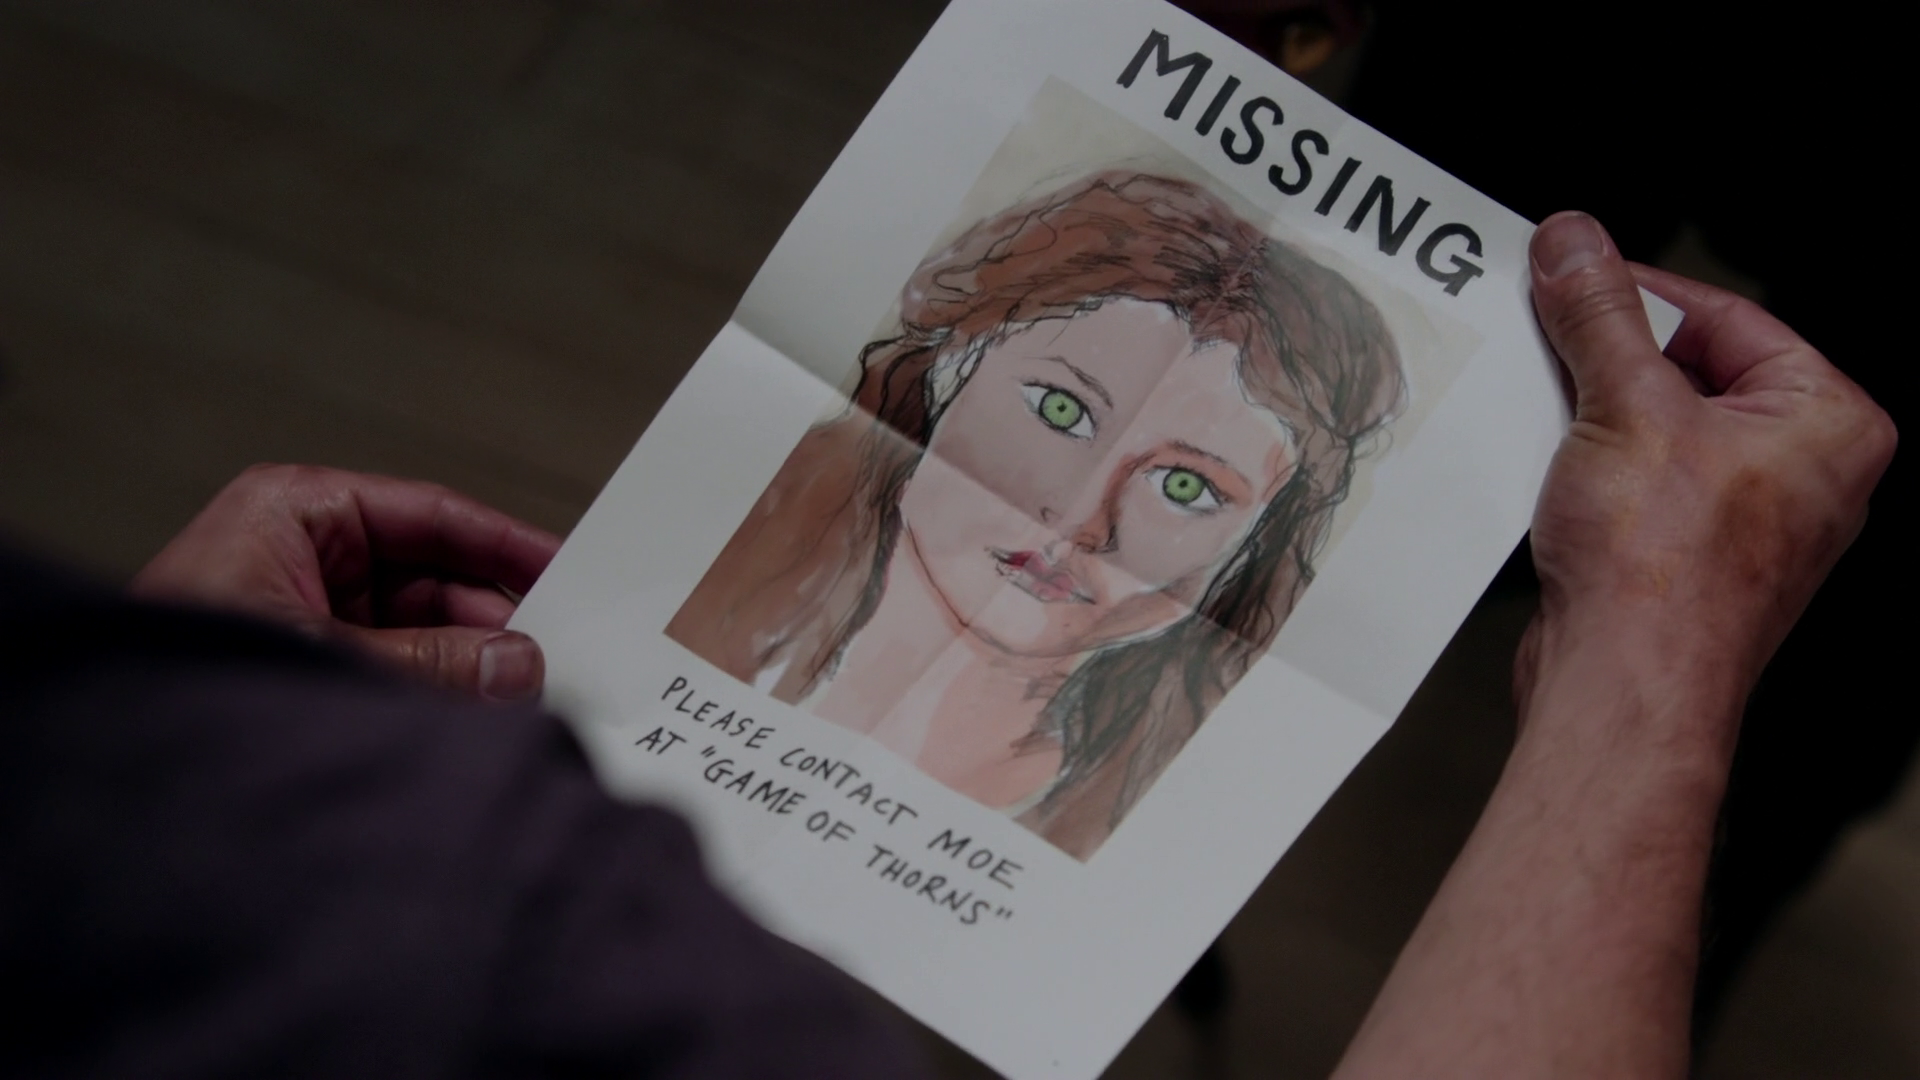 MISSING
PLEASE CONTACT MOE
AT "GAME OF THORNS"